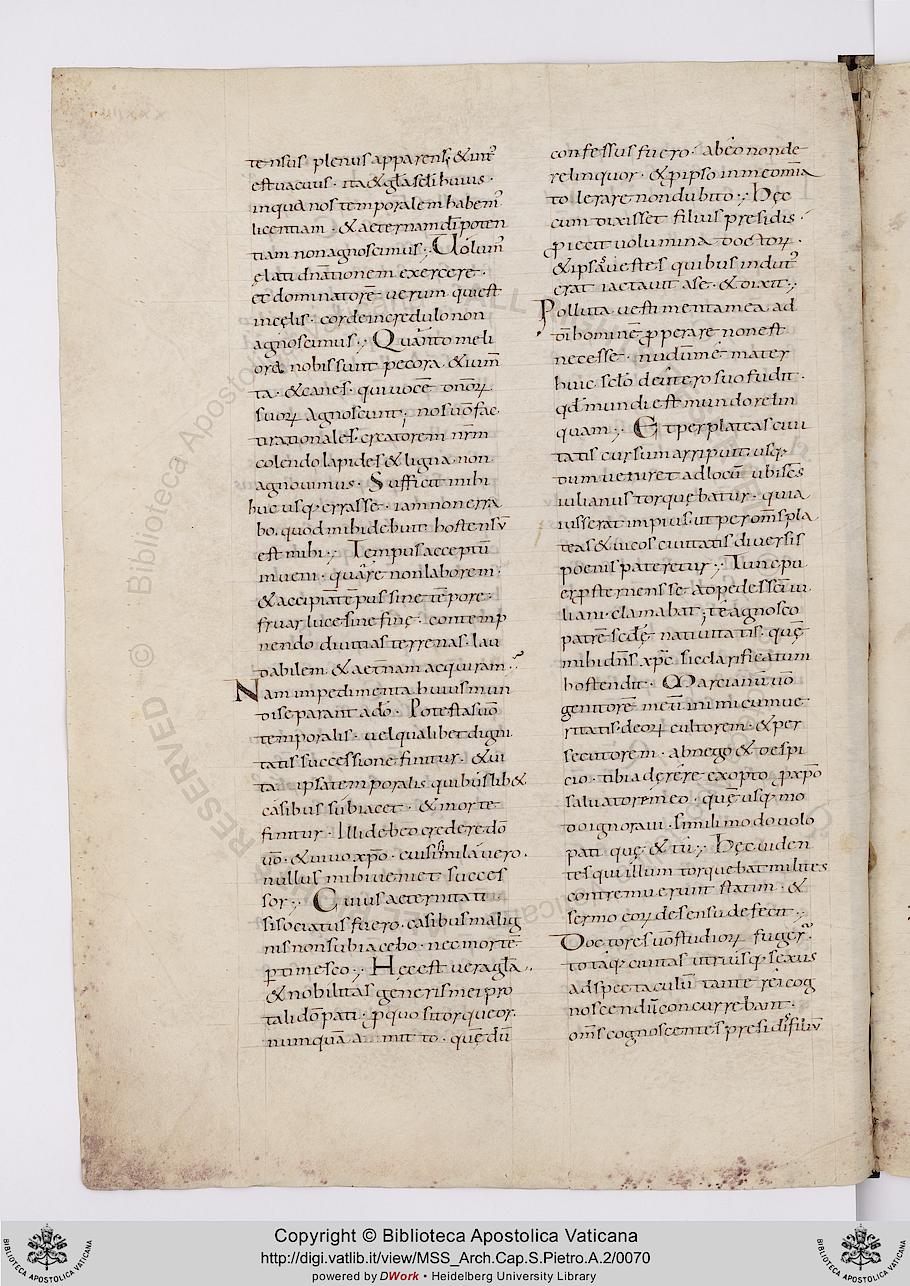 tensus plenus apparens; & int̄
est uacuus · ita & gl̄a sc̄li huius ·
in qua nos temporalem habem̄
licentiam · & aeternam dī poten
tiam non agnoscimus ; Uolum̄
elati dn̄ationem exercere ·
et dominatorē uerum qui est
in cęlis · corde incredulo non
agnoscimus ; Quanto meli
ora nobis sunt pecora · & ium̄
ta · & canes · qui uocē dn̄orꝝ
suorꝝ agnoscunt; nos uō fac
ti rationales creatorem nr̄m
colendo lapides & ligna · non
agnouimus · Sufficit mihi
huc usq· errasse · iam non erra
bo · quod mihi debuit hostensū
est mihi ; Tempus acceptū
inueni · quare non laborem ·
& accipiam tēpus sine tēpore ·
fruar luce sine fine · contemp
nendo diuitias terrenas · lau
dabilem & aet̄nam acquiram ;
Nam impedimenta huius mun
di separant a dō · Potestas uō
temporalis · uel qualibet digni
tatis successione finitur · & ui
ta ipsa temporalis quibuslib&
casibus subiacet · & morte
finitur · Illi debeo credere dō
uō · & uiuo xp̄o · cui similauero ·
nullus mihi ueniet succes
sor ; Cuius aeternitati
si sociatus fuero · casibus malig
nis non subiacebo · nec mortē
ꝑtimesco ; Hęc est uera gl̄a ·
& nobilitas generis mei pro
tali dō pati · ꝓ quo si torqueor ·
nunquā amitto · quę dū
confessus fuero · ab eo non de
relinquor · & ꝑ ipso in me om̄ia
tolerare non dubito ; Hęc
cum dixisset filius presidis
proiecit uolumina doctorꝝ ·
& ipsa uestes quibus indut̄
erat iactauit a se · & dixit ;
Polluta uestimenta mea ad
dī hominē ꝓperare non est
necesse · nudum me mater
huic sclo de utero suo fudit ·
qd̄ mundi est mundo relin
quam ; Et per plateas ciui
tatis cursum arripuit usq·
dum ueniret ad locū ubi sc̄s
iulianus torquebatur · quia
iusserat impius ut per om̄s pla
teas & uicos ciuitatis diuersis
poenis pateretur ; Tunc pu
er ꝓsternens se ad pedes sc̄i iu
liani · clamabat ; te agnosco
patrē scdę natiuitatis · quę
mihi dn̄s xp̄c sic clarificatum
hostendit · Marcianū uō
genitorē meū inimicum ue
ritatis · deorꝝ cultorem · & per
secutorem · abnego & despi
cio · tibi adęrere exopto ꝓ xp̄o
saluatorem eo · quę usq· mo
do ignoraui · simili modo uolo
pati quę & tu ; Hęc uiden
tes qui illum torquebat milites
contremuerunt statim · &
sermo eorꝝ de sensu defecit ;
Doctores uō studiorꝝ fuger̄ ·
totaq· ciuitas utriusq· sexus
ad spectaculū tante rei cog
noscendū concurrebant ·
om̄s cognoscentes presidis filiū
Copyright © Biblioteca Apostolica Vaticana
http://digi.vatlib.it/view/MSS_Arch.Cap.S.Pietro.A.2/0070
powered by DWork • Heidelberg University Library